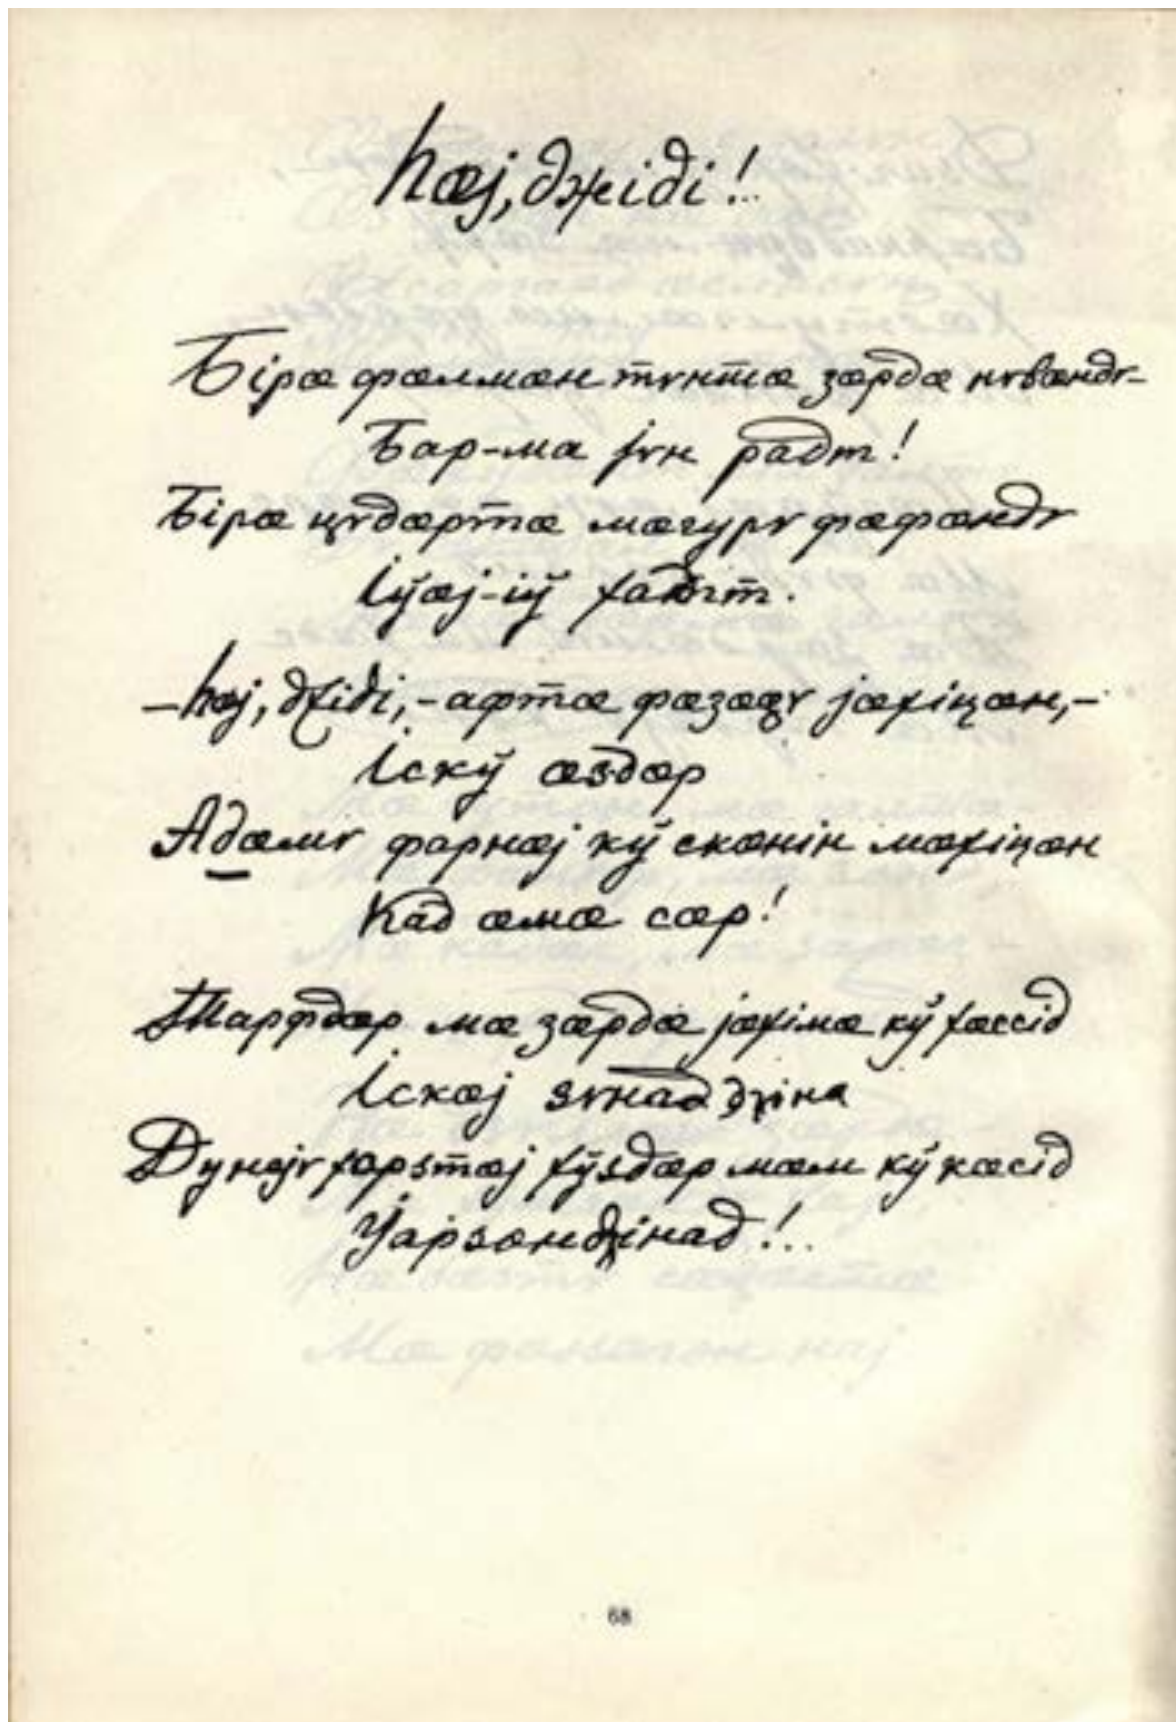 Һӕј, джіді!..
Бірӕ фӕлмӕн тѵнтӕ зӕрдӕ нѵвӕндѵ–
Бар-ма јѵн радт!
Бірӕ цѵдӕртӕ мӕгурѵ фӕфӕндѵ
Іўӕј-іў хатт.
–Һӕј, джіді,–афтӕ фӕзӕгъѵ јӕхіцӕн,–
Іскў ӕздӕр
Адӕмѵ фарнӕј кў скӕнін мӕхіцӕн
Кад ӕмӕ сӕр!
Тарфдӕр мӕ зӕрдӕ јӕхімӕ кў хӕссід
Іскӕј
Дунејѵ хорзтӕј хўздӕр мӕм кў кӕсід
Ўарзондзінад!..
68